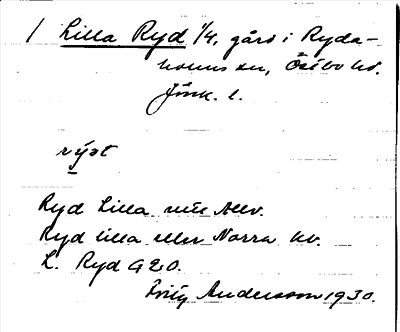 1 Lilla Ryd 1/4, gård i Ryda-
holms sn, Östbo hd.
Jönk. l.
rýət
Ryd Lilla mtl Allv.
Ryd lilla eller Norra hd.
L. Ryd G20.
Fritz Andersson 1930.